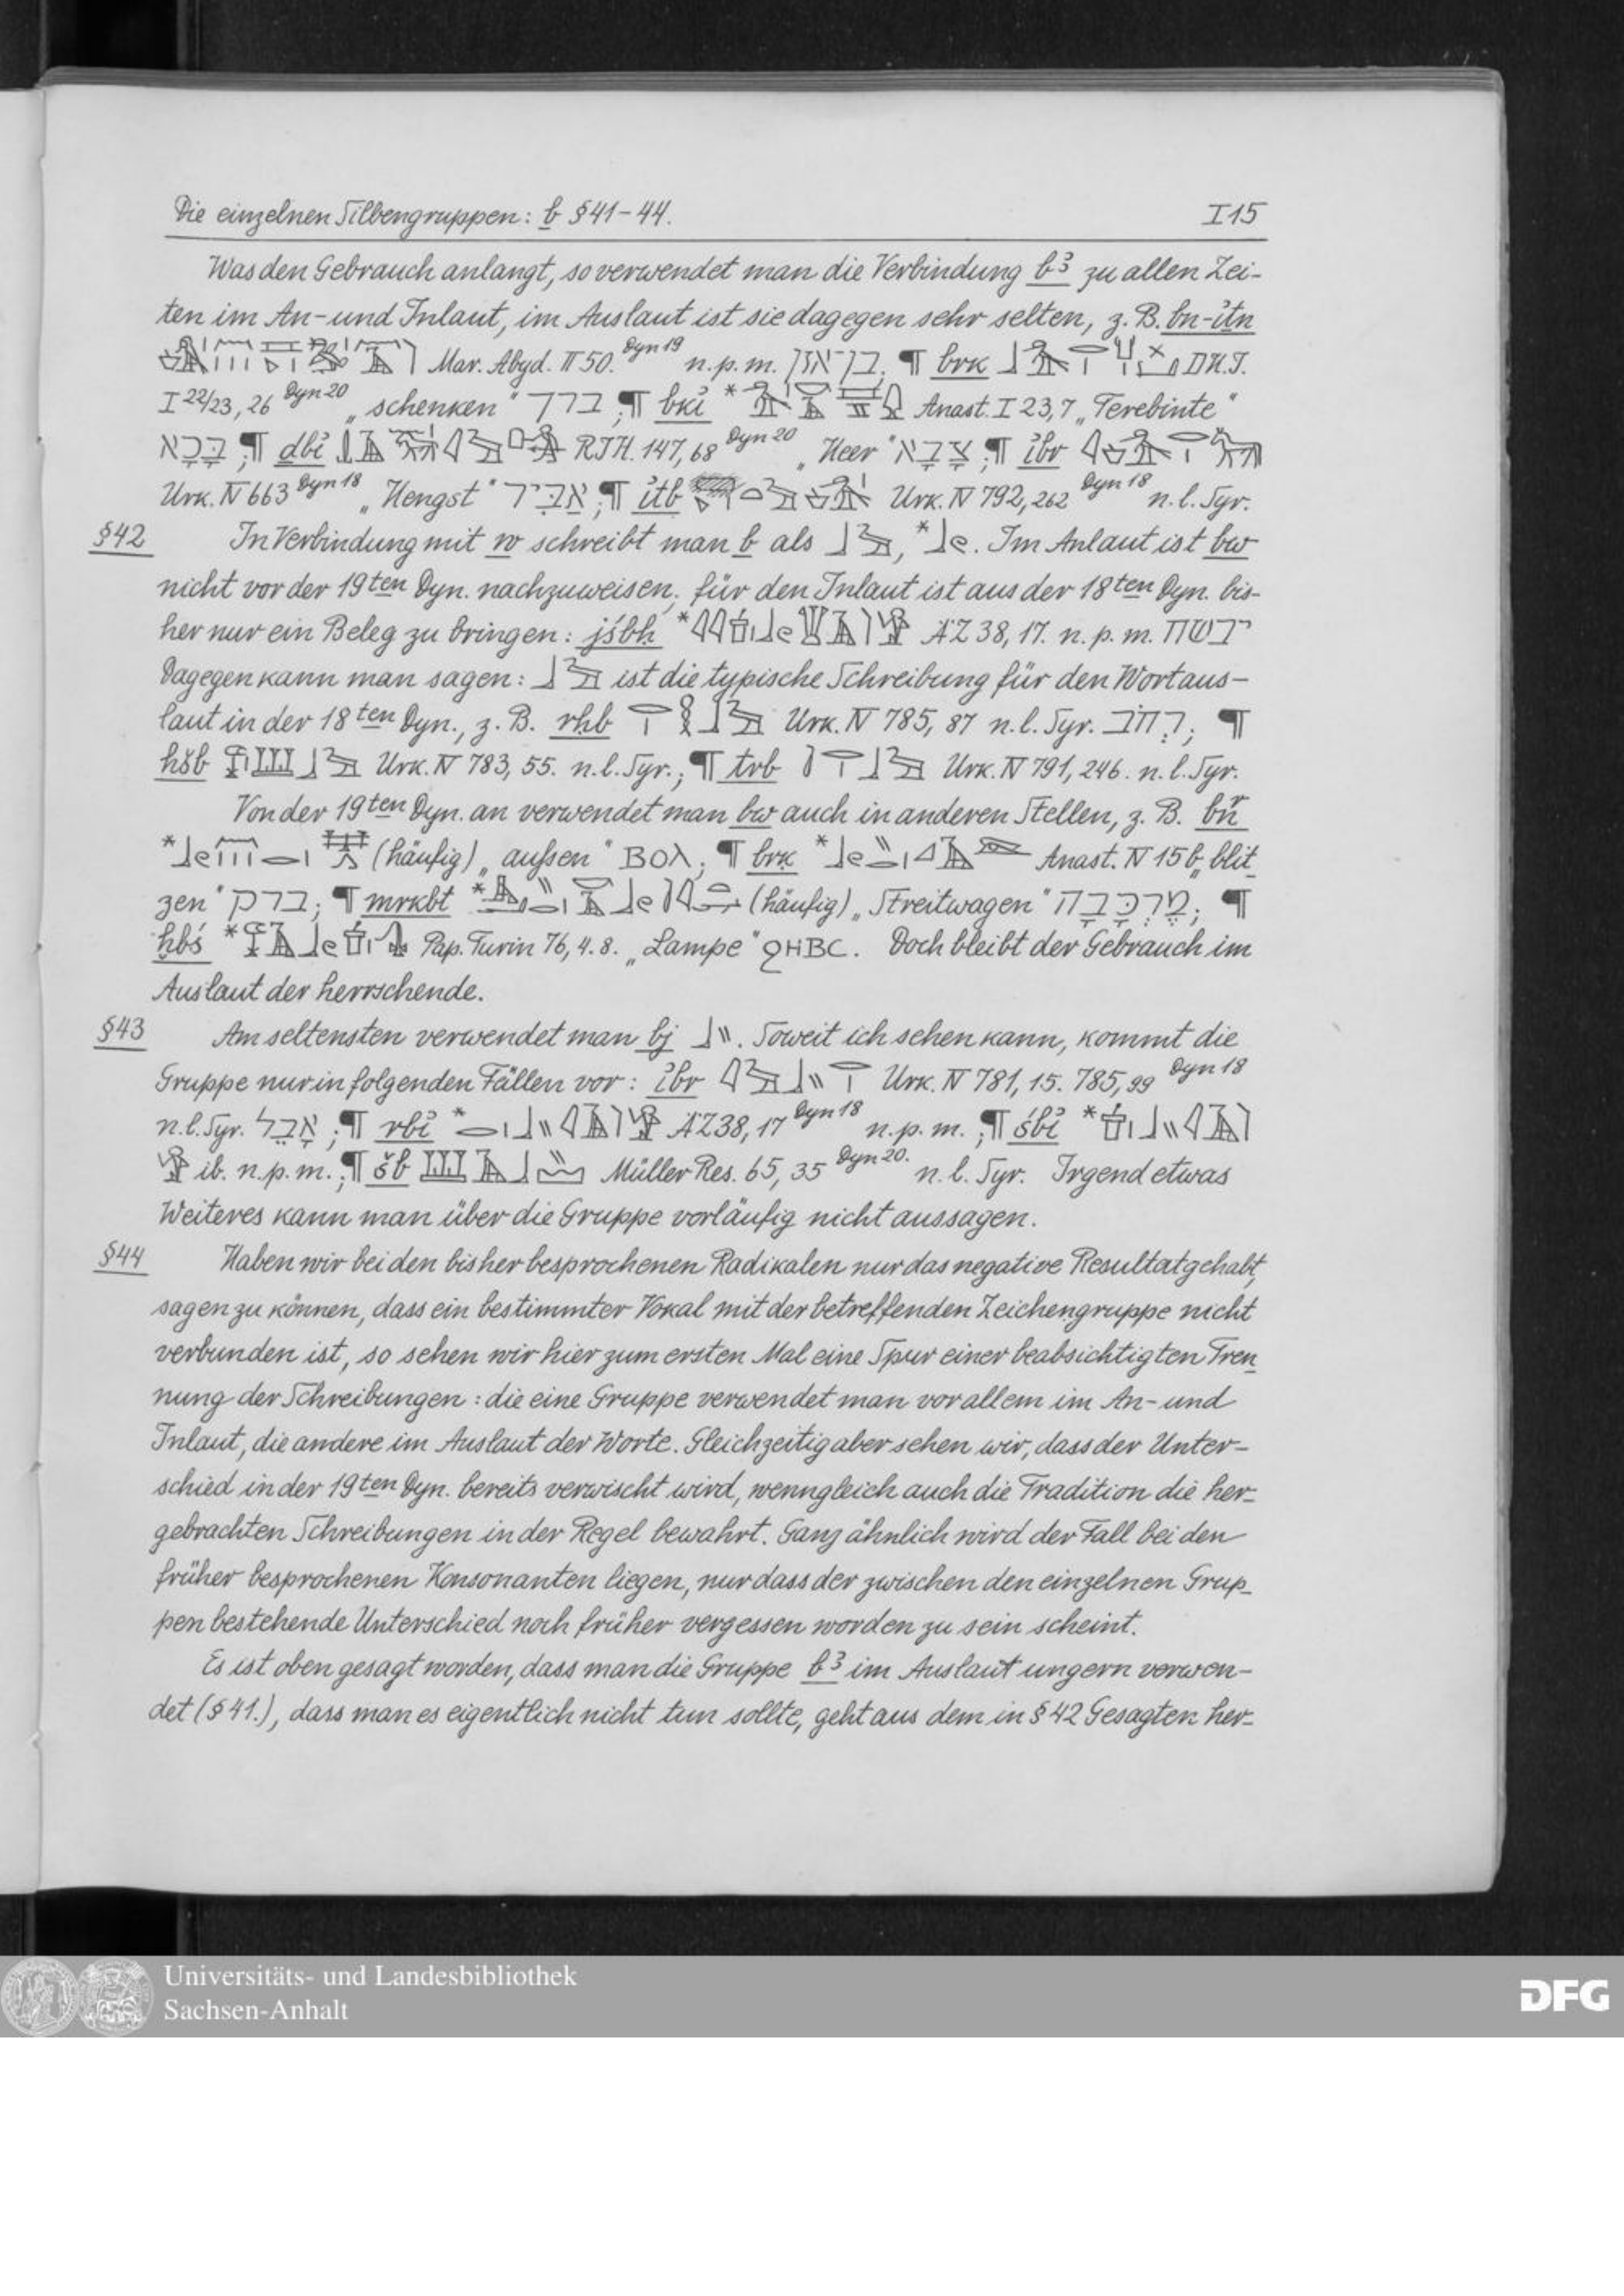 Die einzelnen Silbengruppen: b § 41-44. I 15
Was den Gebrauch anlangt, so verwendet man die Verbindung b3 zu allen Zei-
ten im An- und Inlaut, im Auslaut ist sie dagegen sehr selten, z. B. bn-itn
Mar. Abyd. II 50. Dyn 19 n. p. m. ¶ brk D.H.I.
I 22/23, 26 Dyn 20 „schenken“ ברך ; ¶ bki * Anast. I 23,7 „Terebinte“
בָּכָא ; ¶ dbi R.I.H. 147, 68 Dyn 20 „Heer“ צָבָא ; ¶ ibr
Urk. IV 663 Dyn 18 „Hengst“ אַבִּיר ; ¶ itb Urk. IV 792, 262 Dyn 18 n. l. Syr.
§ 42 In Verbindung mit w schreibt man b als , * . Im Anlaut ist bw
nicht vor der 19ten Dyn. nachzuweisen, für den Inlaut ist aus der 18ten Dyn. bis-
her nur ein Beleg zu bringen: jśbḫ * ÄZ 38, 17. n. p. m.
Dagegen kann man sagen: ist die typische Schreibung für den Wortaus-
laut in der 18ten Dyn., z. B. rḥb Urk. IV 785, 87 n. l. Syr. ; ¶
ḫšb Urk. IV 783, 55. n. l. Syr.; ¶ trb Urk. IV 791, 246. n. l. Syr.
Von der 19ten Dyn. an verwendet man bw auch in anderen Stellen, z. B.
* (häufig) „aussen“ ⲃⲟⲗ; ¶ brk * Anast. IV 15 b, „blit
zen“ ברק; ¶ mrkbt * (häufig) „Streitwagen“ מֶרְכָּבָה; ¶
ḫbś * Pap. Turin 76, 4. 8. „Lampe“ ϩⲏⲃⲥ. Doch bleibt der Gebrauch im
Auslaut der herrschende.
§ 43 Am seltensten verwendet man bj . Soweit ich sehen kann, kommt die
Gruppe nur in folgenden Fällen vor: ibr Urk. IV 781, 15. 785, 99 Dyn 18
n. l. Syr. אָבֵל ; ¶ rbi * ÄZ 38, 17 Dyn 18 n. p. m. ; ¶ śbi *
ib. n. p. m. ; ¶ šb Müller Res. 65, 35 Dyn 20. n. l. Syr. Irgend etwas
Weiteres kann man über die Gruppe vorläufig nicht aussagen.
§ 44 Haben wir bei den bisher besprochenen Radikalen nur das negative Resultat gehabt,
sagen zu können, dass ein bestimmter Vokal mit der betreffenden Zeichengruppe nicht
verbunden ist, so sehen wir hier zum ersten Mal eine Spur einer beabsichtigten Tren
nung der Schreibungen: die eine Gruppe verwendet man vor allem im An- und
Inlaut, die andere im Auslaut der Worte. Gleichzeitig aber sehen wir, dass der Unter-
schied in der 19ten Dyn. bereits verwischt wird, wenngleich auch die Tradition die her-
gebrachten Schreibungen in der Regel bewahrt. Ganz ähnlich wird der Fall bei den
früher besprochenen Konsonanten liegen, nur dass der zwischen den einzelnen Grup-
pen bestehende Unterschied noch früher vergessen worden zu sein scheint.
Es ist oben gesagt worden, dass man die Gruppe b3 im Auslaut ungern verwen-
det (§ 41.), dass man es eigentlich nicht tun sollte, geht aus dem in § 42 Gesagten her-
Universitäts- und Landesbibliothek
Sachsen-Anhalt
DFG